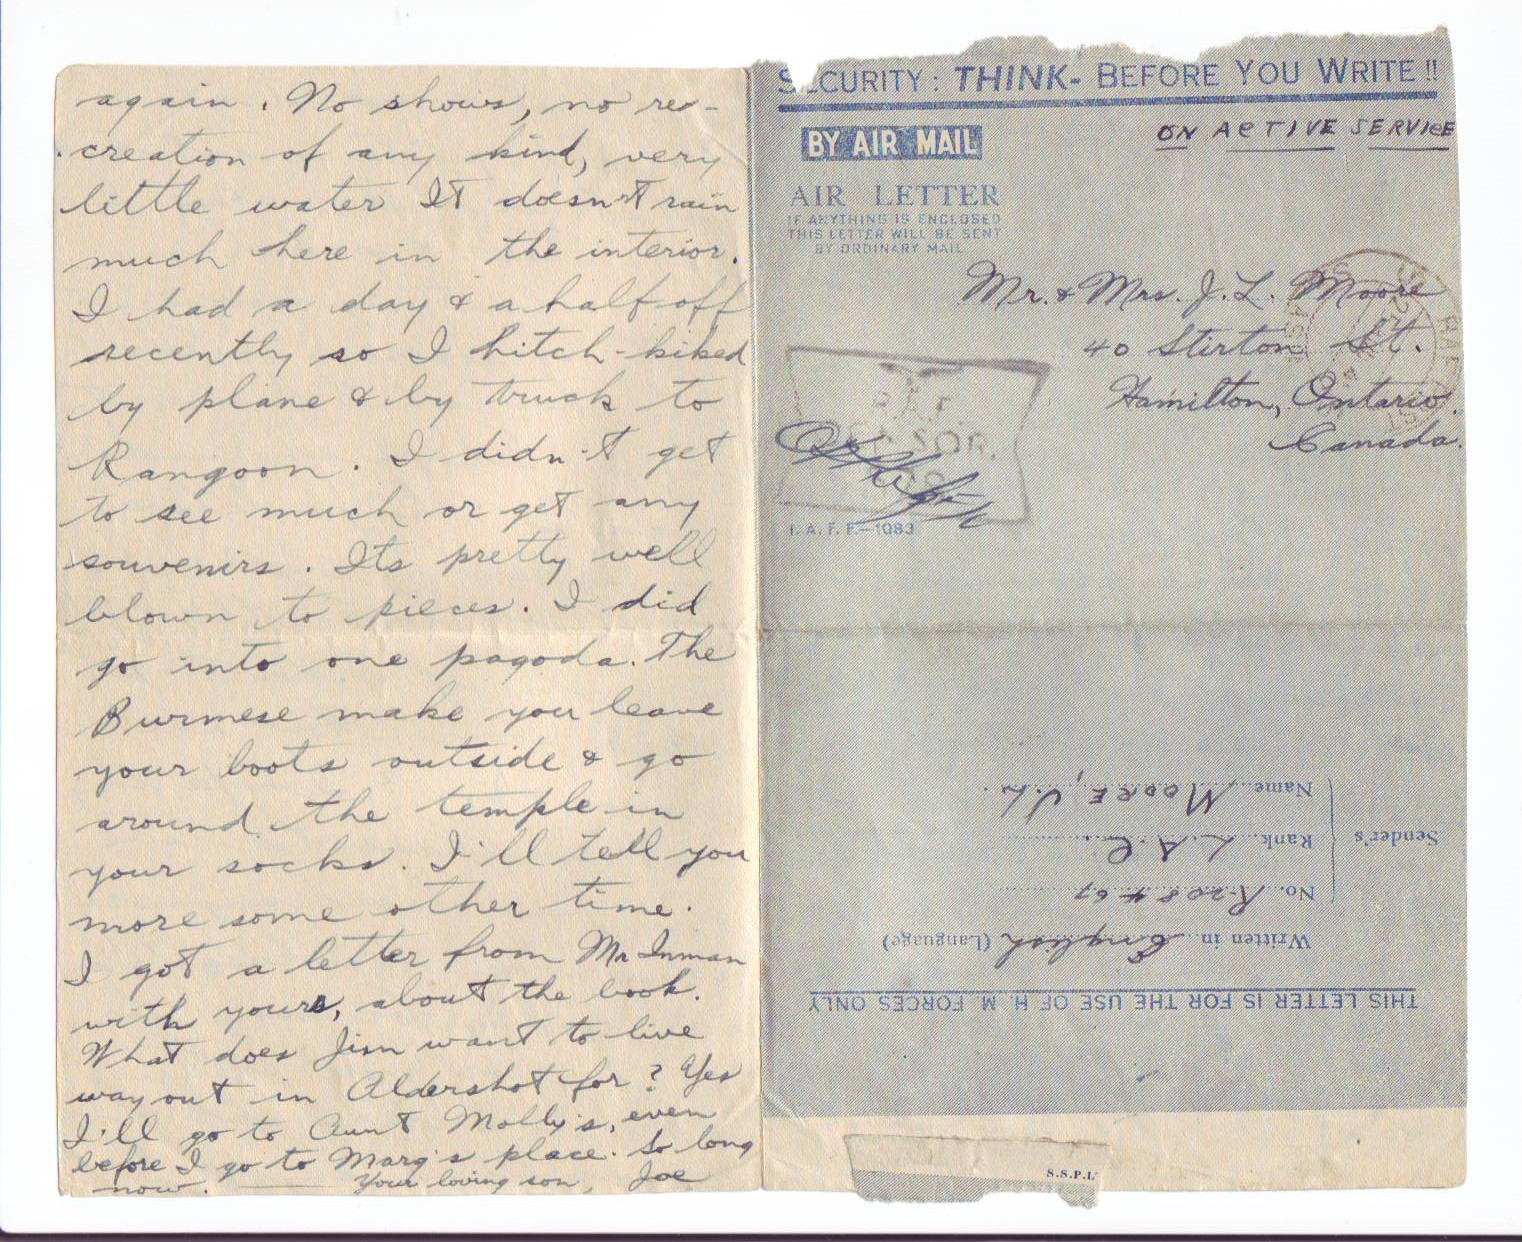 again. No shows, no re-
creation of any kind, very
little water It doesn't rain
much here in the interior.
I had a day & a half off
recently so I hitch-hiked
by plane & by truck to
Rangoon. I didn't get
to see much or get any
souvenirs. Its pretty well
blown to pieces. I did
go into one pagoda. The
Burmese make you leave
your boots outside & go
around the temple in
your socks. I'll tell you
more some other time.
I got a letter from Mr Inman
with yours, about the book.
What does Jim want to live
way out in Aldershot for? Yes
I'll go to Aunt Molly's, even
before I go to Marg's place. So long
now. Your loving son, Joe
SECURITY: THINK- BEFORE YOU WRITE!!
ON ACTIVE SERVICE
BY AIR MAIL
AIR LETTER
IF ANYTHING IS ENCLOSED
THIS LETTER WILL BE SENT
BY ORDINARY MAIL
Mr. & Mrs. J. L. Moore
40 Stirton St.
Hamilton, Ontario.
Canada.
I. A. F. F.—1083
THIS LETTER IS FOR THE USE OF H. M. FORCES ONLY
Written in English (Language)
No. R-208467
Sender's Rank L.A.C.
Name MOORE, J.L.
S.S.P.I.